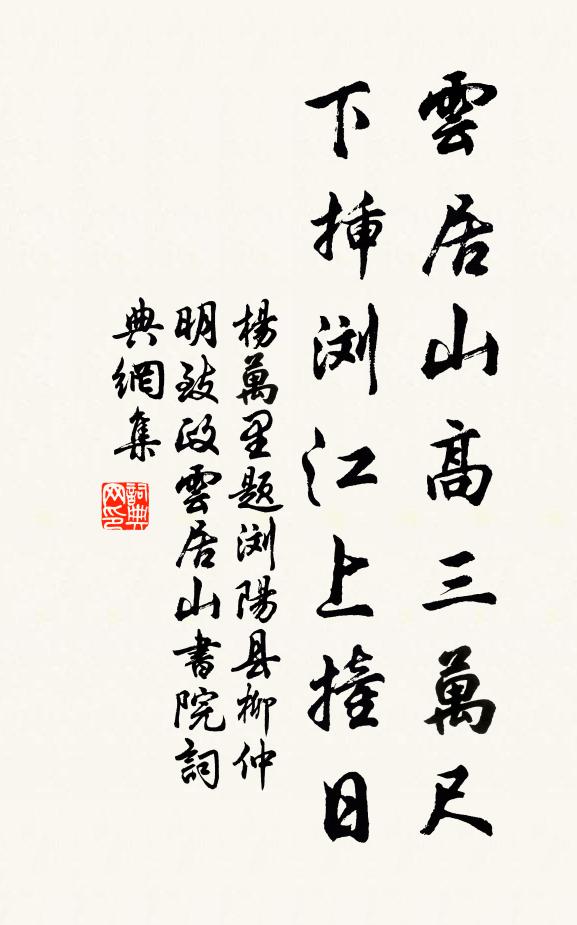 雲居山高三萬尺
下挿浏江上撞日
楊萬里题浏陽县柳仲
明致政雲居山書院詞
典網集
詞典
网印